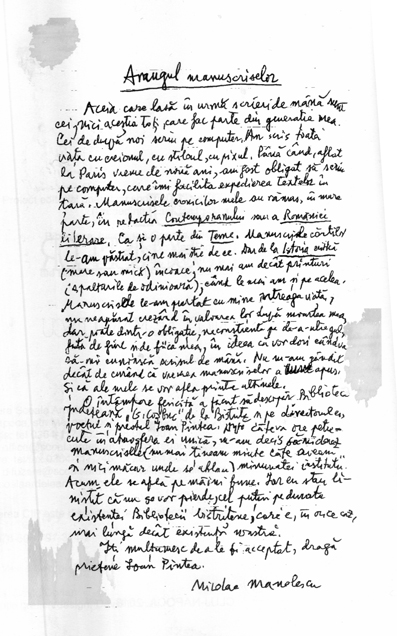 Amurgul manuscriselor
Aceia care lasă în urmă scrieri de mână sunt
cei, nici aceştia toţi, care fac parte din generaţia mea.
Cei de după noi scriu pe computer. Am scris toată
viaţa cu creionul, cu stiloul, cu pixul. Până când, aflat
la Paris vreme de nouă ani, am fost obligat să scriu
pe computer, care îmi facilita expedierea textelor în
ţară. Manuscrisele cronicilor mele au rămas, în mare
parte, în redacţia Contemporanului sau a României
literare. Ca şi o parte din Teme. Manuscrisele cărţilor
le-am păstrat, cine mai ştie de ce. Dar de la Istoria critică
(mare sau mică) încoace, nu mai am decât printuri
(şpalturile de odinioară), când le mai am şi pe acelea.
Manuscrisele le-am purtat cu mine întreaga viaţă,
nu neapărat crezând în valoarea lor după moartea mea,
dar poate dintr-o obligaţie, neconştientă pe de-a-ntregul,
faţă de fiul şi de fiica mea, în ideea că vor dori cândva
să-mi cunoască scrisul de mână. Nu m-am gândit
decât de curând că vremea manuscriselor a apus.
Şi că ale mele se vor afla printre ultimele.
O întâmplare fericită a făcut să descopăr Biblioteca
Judeţeană „G. Coşbuc" de la Bistriţa şi pe directorul ei,
poetul şi preotul Ioan Pintea. După câteva ore petre-
cute în atmosfera ei unică, m-am decis să-mi donez
manuscrisele (nu mai ţineam minte câte aveam
şi nici măcar unde se aflau) minunatei instituţii.
Acum ele se află pe mâini bune. Iar eu stau li-
niştit că nu se vor pierde, cel puţin pe durata
existenţei Bibliotecii bistriţene, care e, în orice caz,
mai lungă decât existenţa noastră.
Îţi mulţumesc de a le fi acceptat, dragă
prietene Ioan Pintea.
Nicolae Manolescu